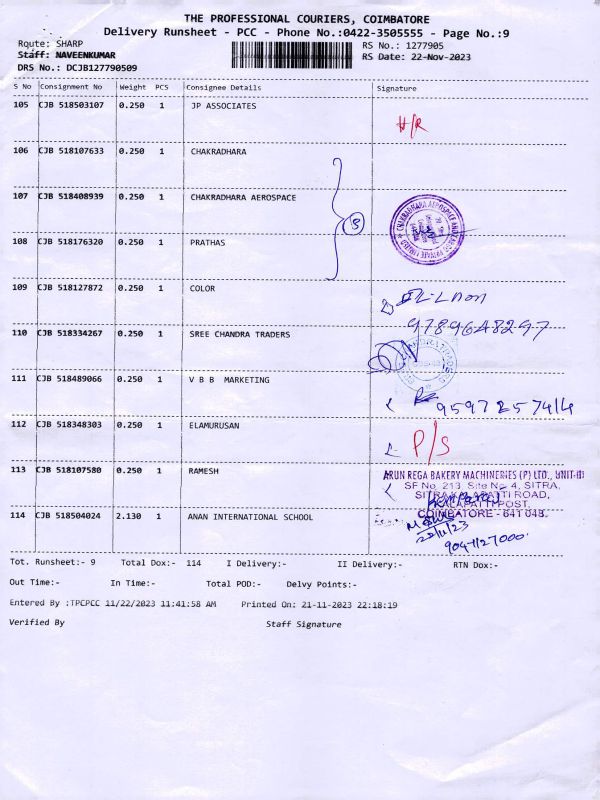 THE PROFESSIONAL COURIERS, COIMBATORE
Delivery Runsheet - PCC - Phone No.:0422-3505555 - Page No.:9
Route: SHARP
RS No.: 1277905
Staff: NAVEENKUMAR
RS Date: 22-Nov-2023
DRS No.: DCJB127790509
S No Consignment No Weight PCS Consignee Details Signature
105 CJB 518503107 0.250 1 JP ASSOCIATES
H/R
106 CJB 518107633 0.250 1 CHAKRADHARA
107 CJB 518408939 0.250 1 CHAKRADHARA AEROSPACE
3
108 CJB 518176320 0.250 1 PRATHAS
109 CJB 518127872 0.250 1 COLOR
9789648297
110 CJB 518334267 0.250 1 SREE CHANDRA TRADERS
111 CJB 518489066 0.250 1 V B B MARKETING
9597257414
112 CJB 518348303 0.250 1 ELAMURUSAN
P/S
113 CJB 518107580 0.250 1 RAMESH
ARUN REGA BAKERY MACHINERIES (P) LTD., UNIT-III
SF No. 213, Site No - 4, SITRA,
SITRA KALAPATTI ROAD,
KALAPATTI POST,
COIMBATORE - 641 048.
114 CJB 518504024 2.130 1 ANAN INTERNATIONAL SCHOOL
22/11/23
9047127000
Tot. Runsheet:- 9 Total Dox:- 114 I Delivery:- II Delivery:- RTN Dox:-
Out Time:- In Time:- Total POD:- Delvy Points:-
Entered By :TPCPCC 11/22/2023 11:41:58 AM Printed On: 21-11-2023 22:18:19
Verified By Staff Signature